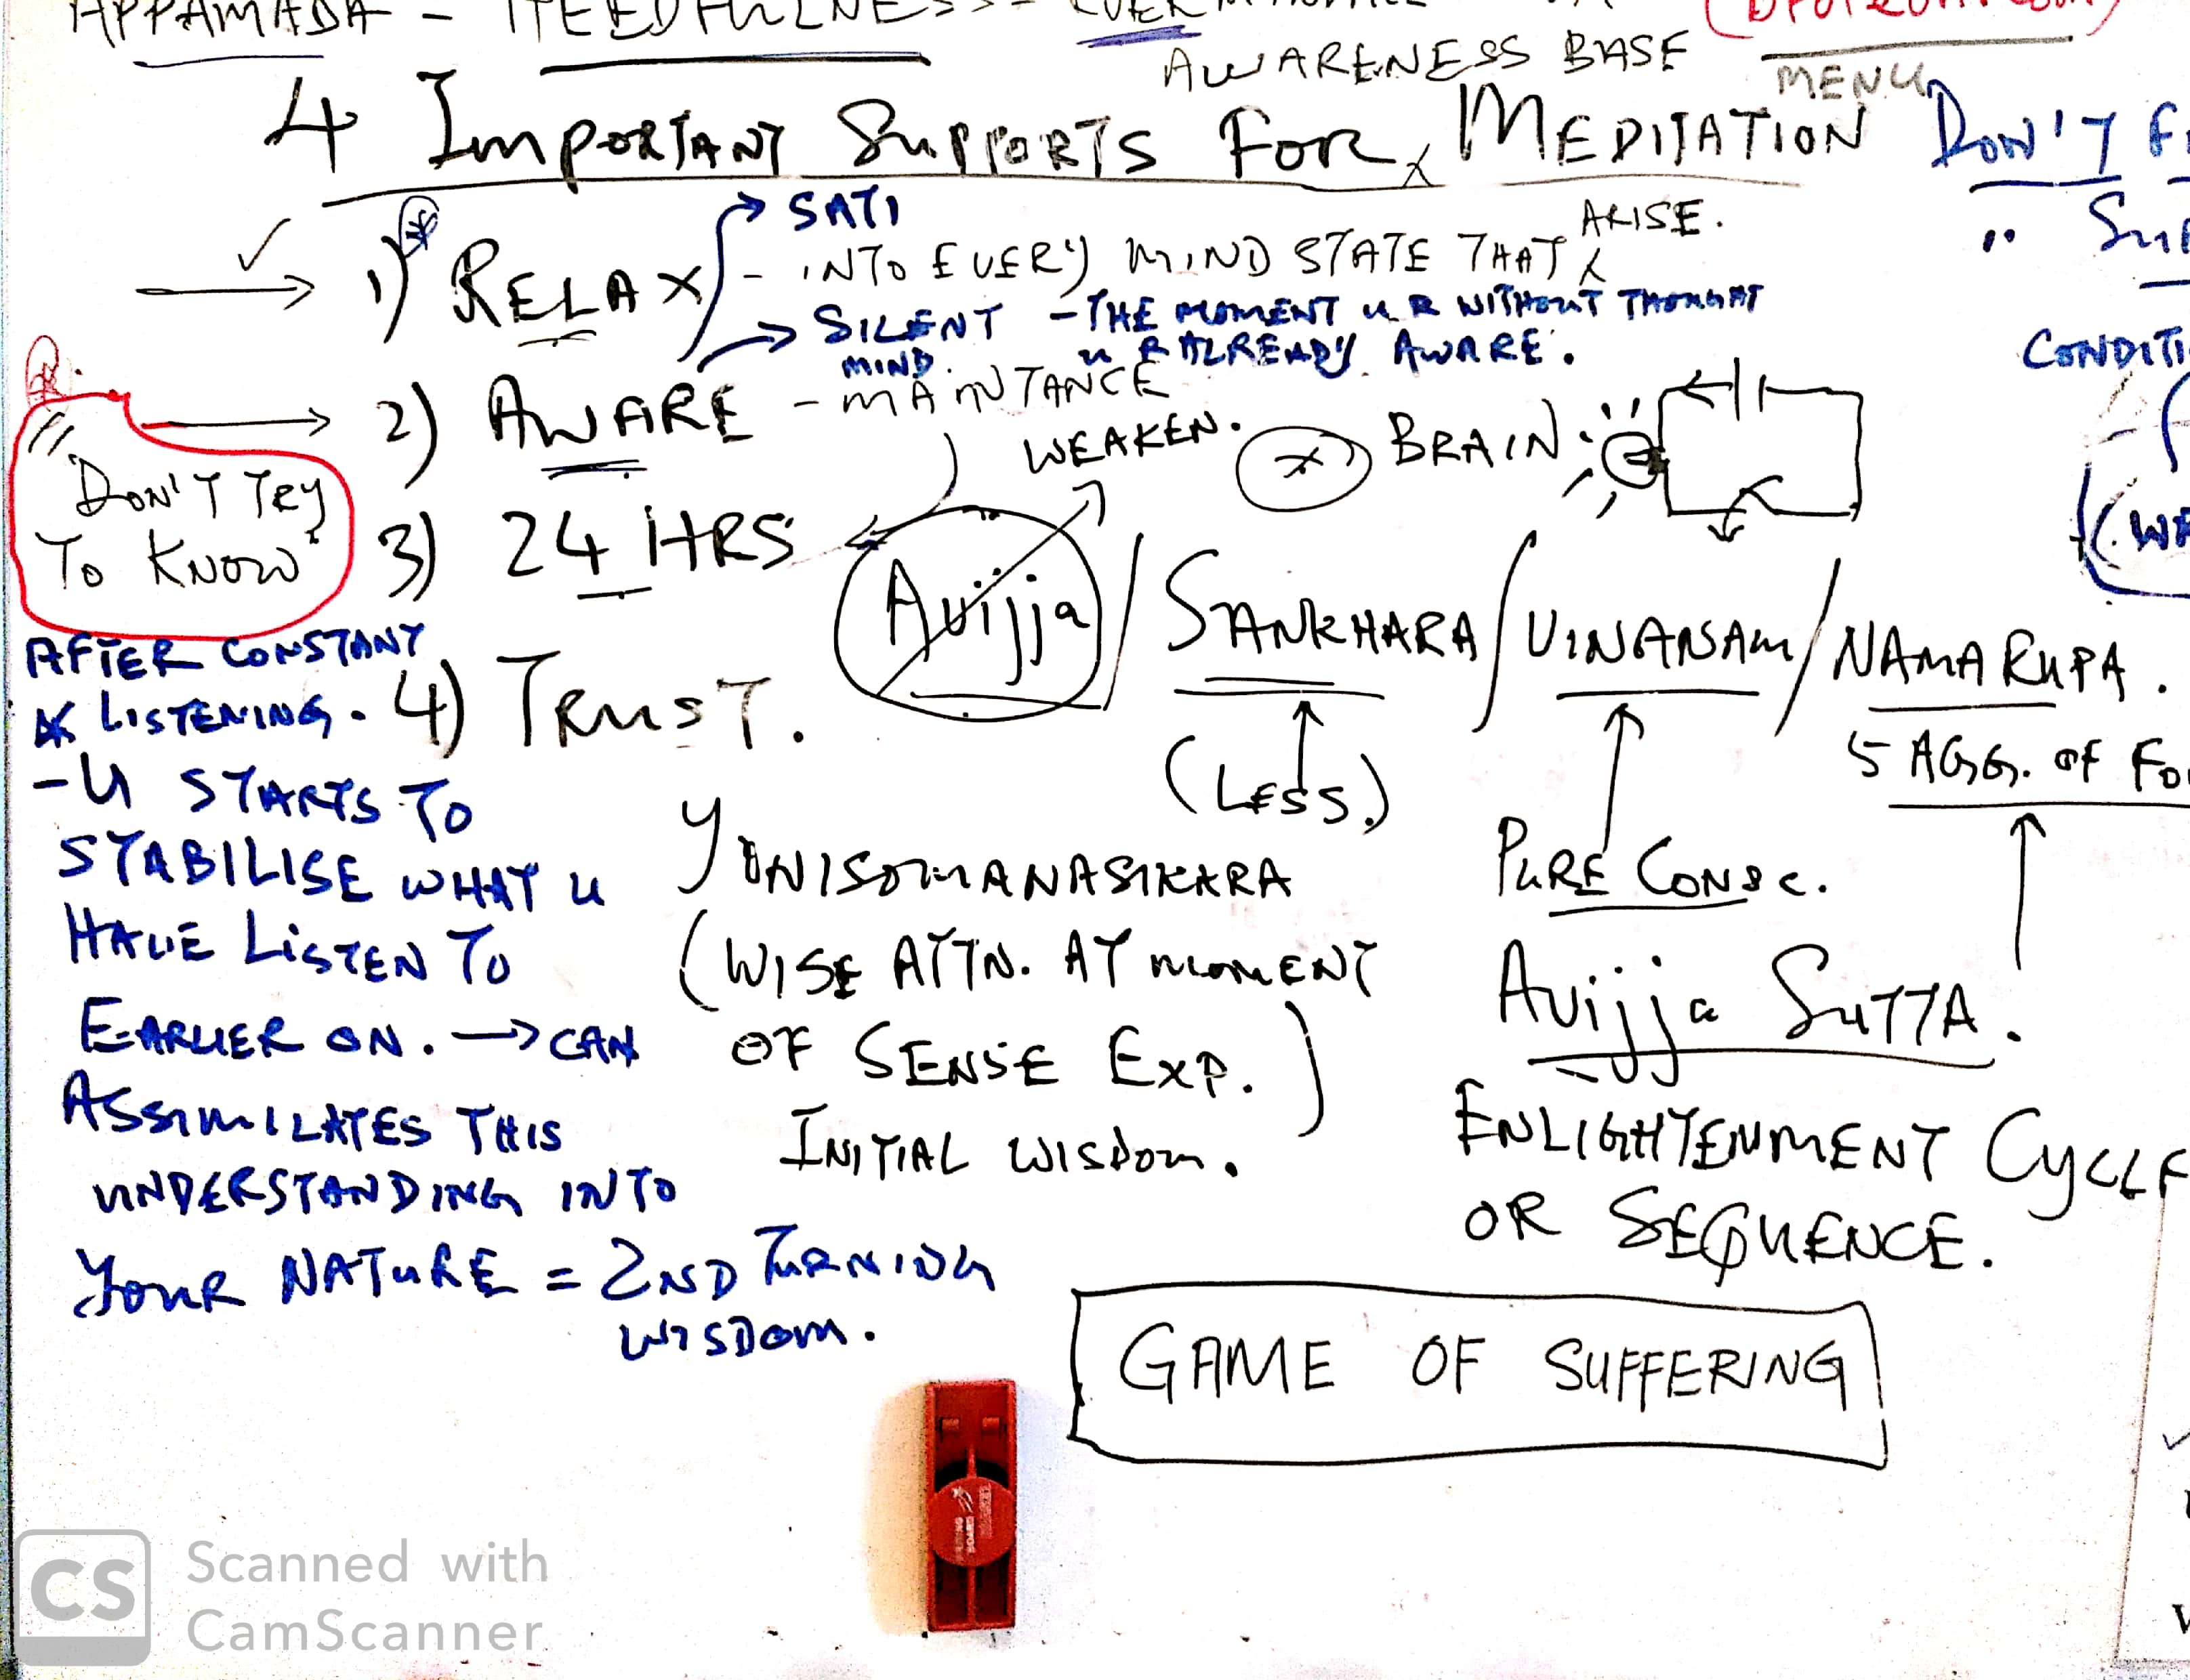 APPAMADA - HEEDFULNESS -
AWARENESS BASE
MENU
4 IMPORTANT SUPPORTS FOR MEDITATION
DON'T
SATI
1) RELAX - INTO EVERY MIND STATE THAT ARISE.
SILENT MIND. - THE MOMENT U R WITHOUT THOUGHT
U R ALREADY AWARE.
2) AWARE - MAINTANCE
WEAKEN.
BRAIN
"DON'T TRY
TO KNOW"
3) 24 HRS
Avijja / SANKHARA / VINANAM / NAMA RUPA.
4) TRUST.
(LESS.)
5 AGG. OF
PURE CONSC.
AFTER CONSTANT
LISTENING.
- U STARTS TO
STABILISE WHAT U
HAVE LISTEN TO
EARLIER ON. → CAN
ASSIMILATES THIS
UNDERSTANDING INTO
YOUR NATURE = 2ND TURNING
WISDOM.
YONISOMANASIKARA
(WISE ATTN. AT MOMENT
OF SENSE EXP.)
INITIAL WISDOM.
Avijja SUTTA.
ENLIGHTENMENT CYCLE
OR SEQUENCE.
GAME OF SUFFERING
CS
Scanned with
CamScanner